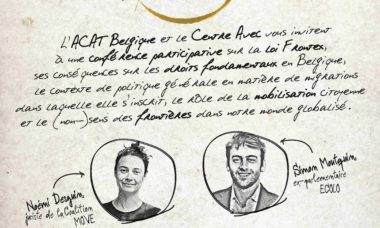 L'ACAT Belgique et le Centre Avec vous invitent
à une conférence participative sur la loi Frontex,
ses conséquences sur les droits fondamentaux en Belgique,
le contexte de politique générale en matière de migrations
dans laquelle elle s'inscrit, le rôle de la mobilisation citoyenne
et le (non-)sens des frontières dans notre monde globalisé.
Noémi Desguin,
juriste de la Coalition
MOVE
Simon Moutquin,
ex-parlementaire
ECOLO